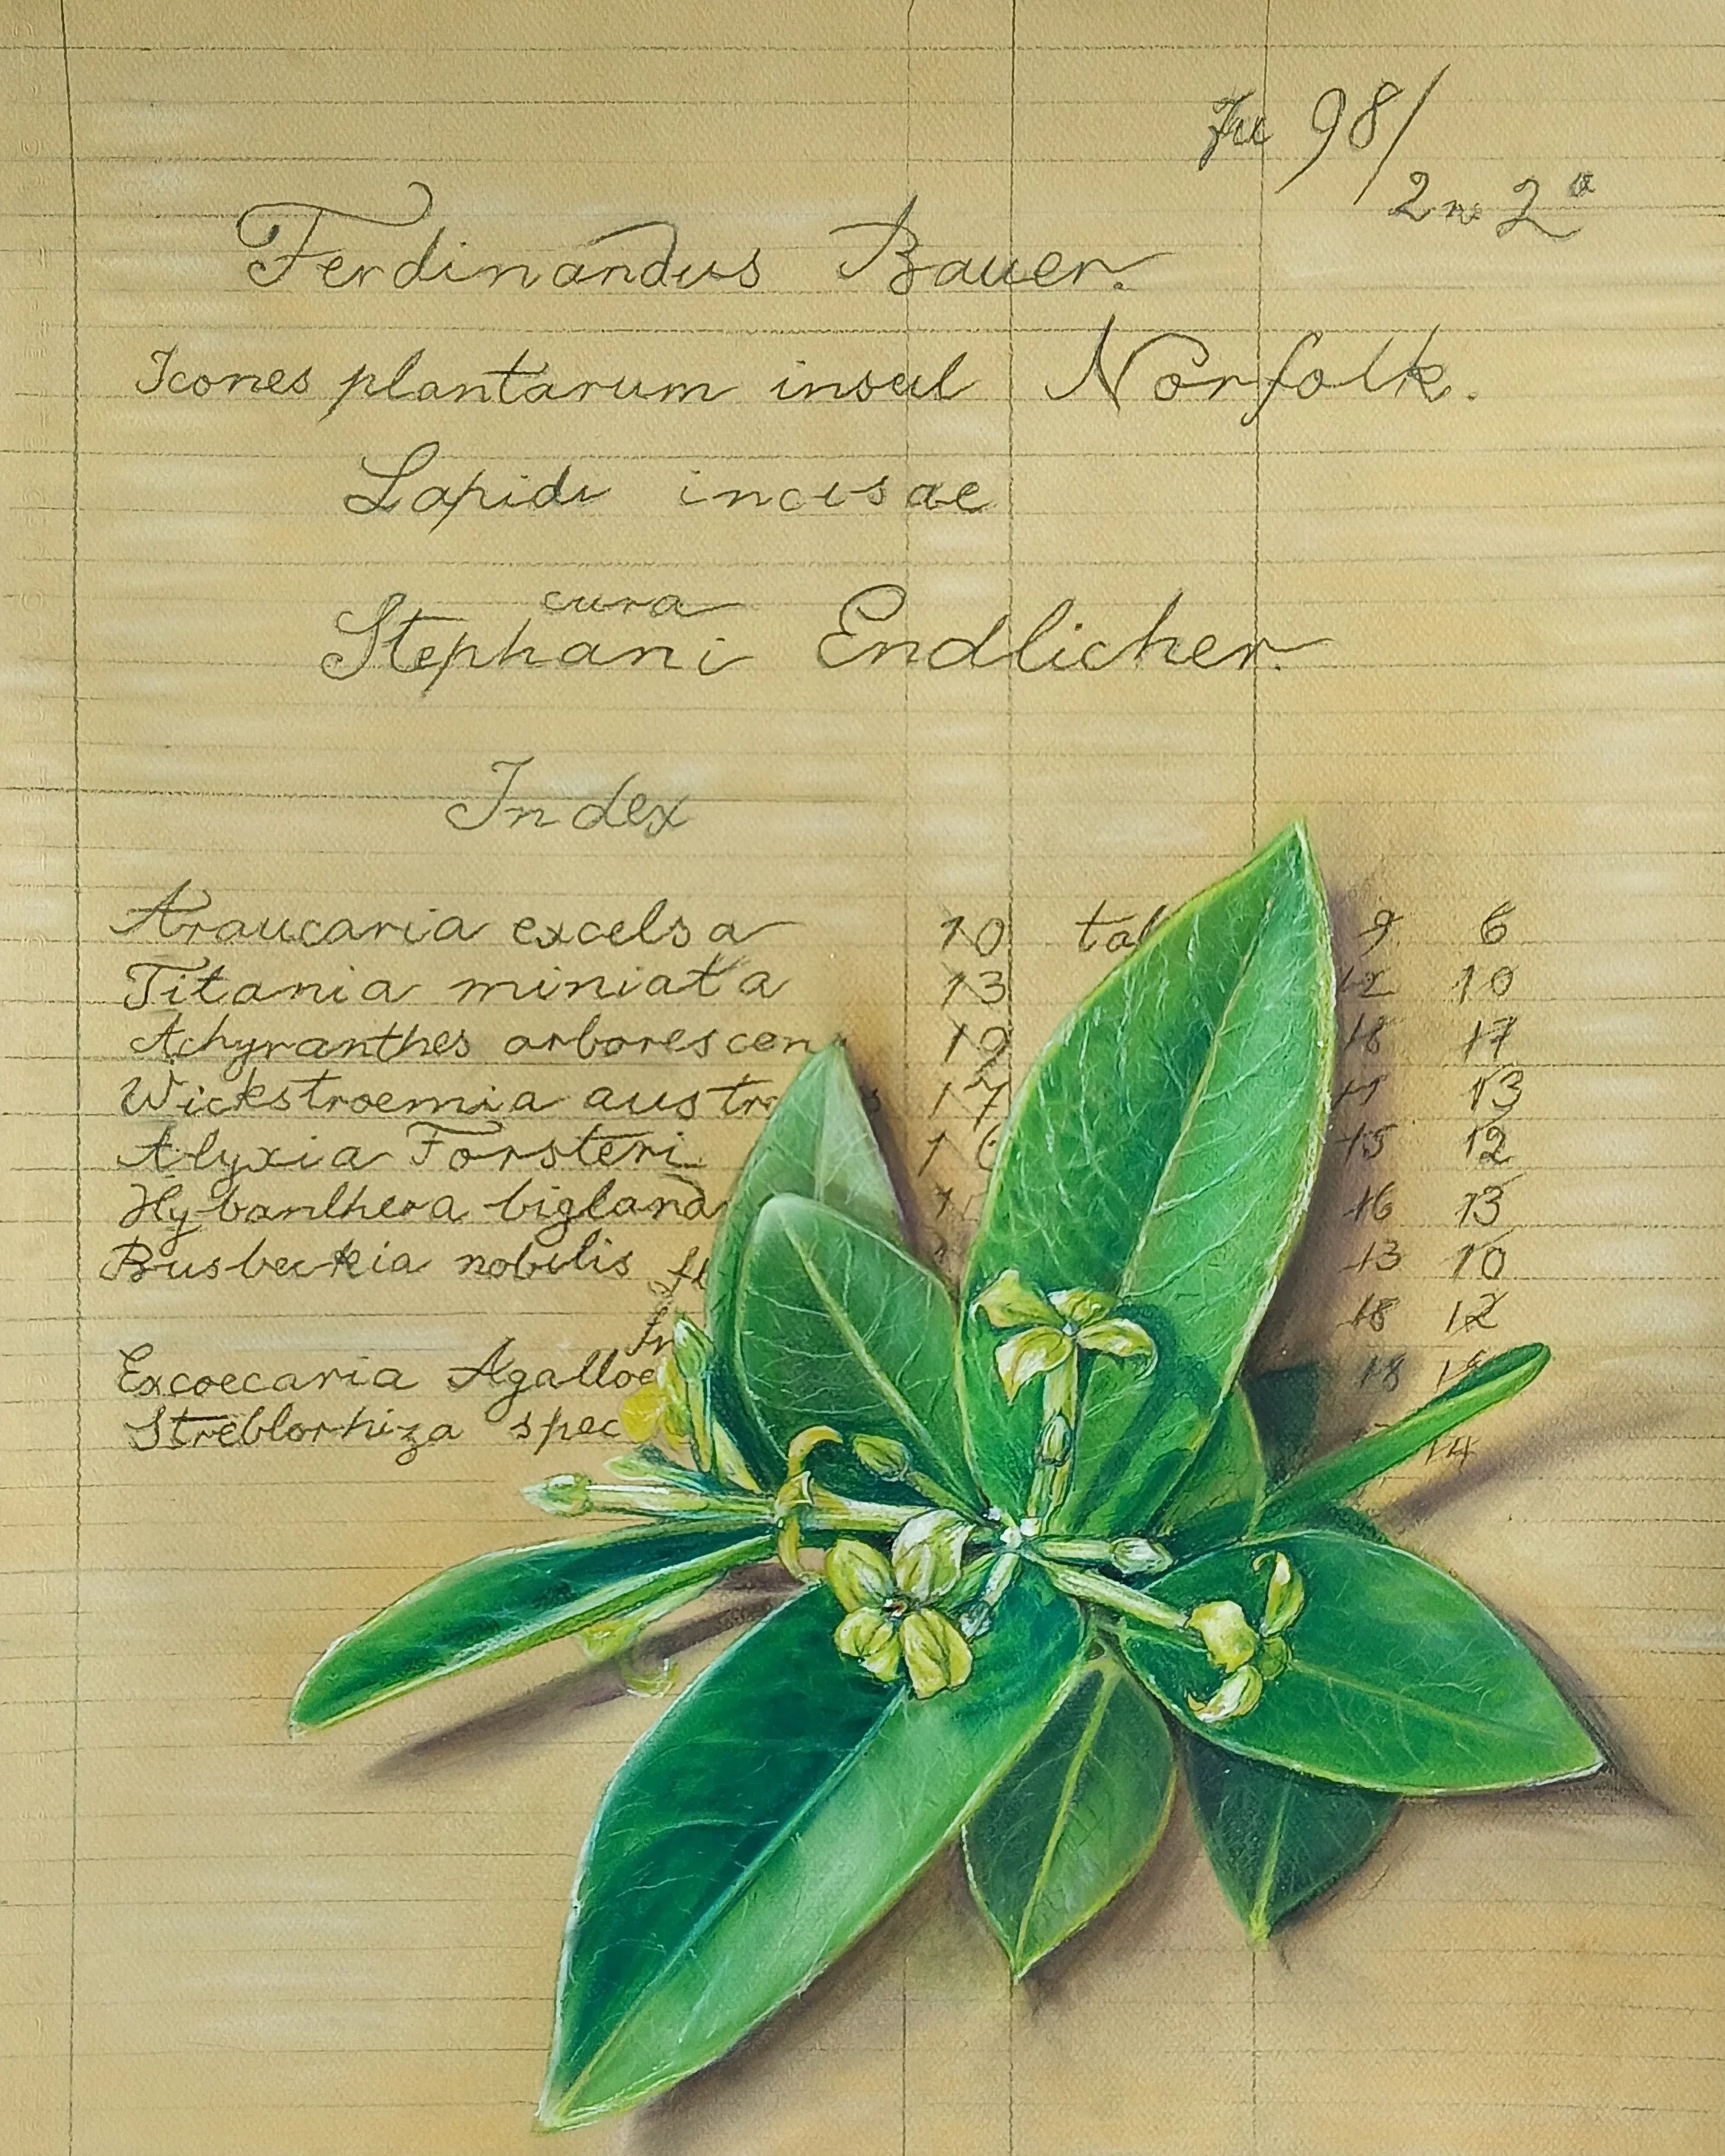 Fu 98/
2n 2º
Ferdinandus Bauer.
Icones plantarum insul Norfolk.
Lapidi incisae
cura
Stephani Endlicher.
Index
Araucaria excelsa 10 9 6
Titania miniata 13 12 10
Achyranthes arborescen 19 18 17
Wickstroemia austr 17 13
Alyxia Forsteri 15 12
Hybanthera bigland 16 13
Busbeckia nobilis 13 10
18 12
Excoecaria Agalloc 18
Streblorhiza spec 14